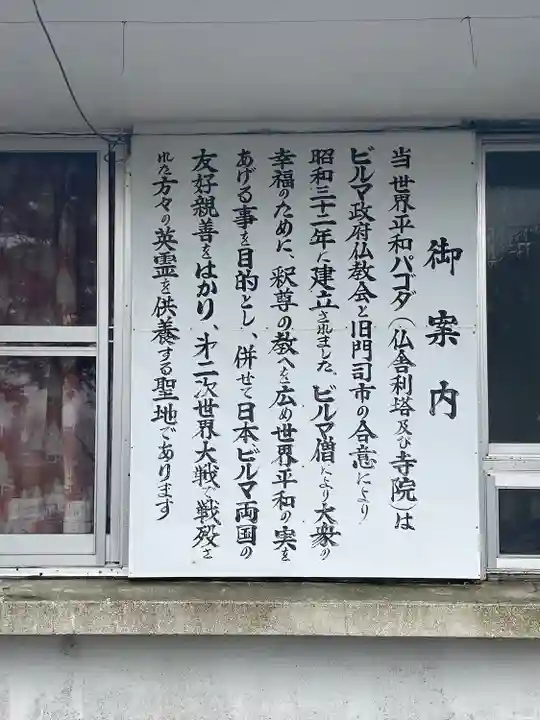 御案内
当世界平和パゴダ(仏舎利塔及び寺院)は
ビルマ政府仏教会と旧門司市の合意により
昭和三十二年に建立されました。ビルマ僧により大衆の
幸福のために、釈尊の教へを広め世界平和の実を
あげる事を目的とし、併せて日本ビルマ両国の
友好親善をはかり、第二次世界大戦で戦殁さ
れた方々の英霊を供養する聖地であります